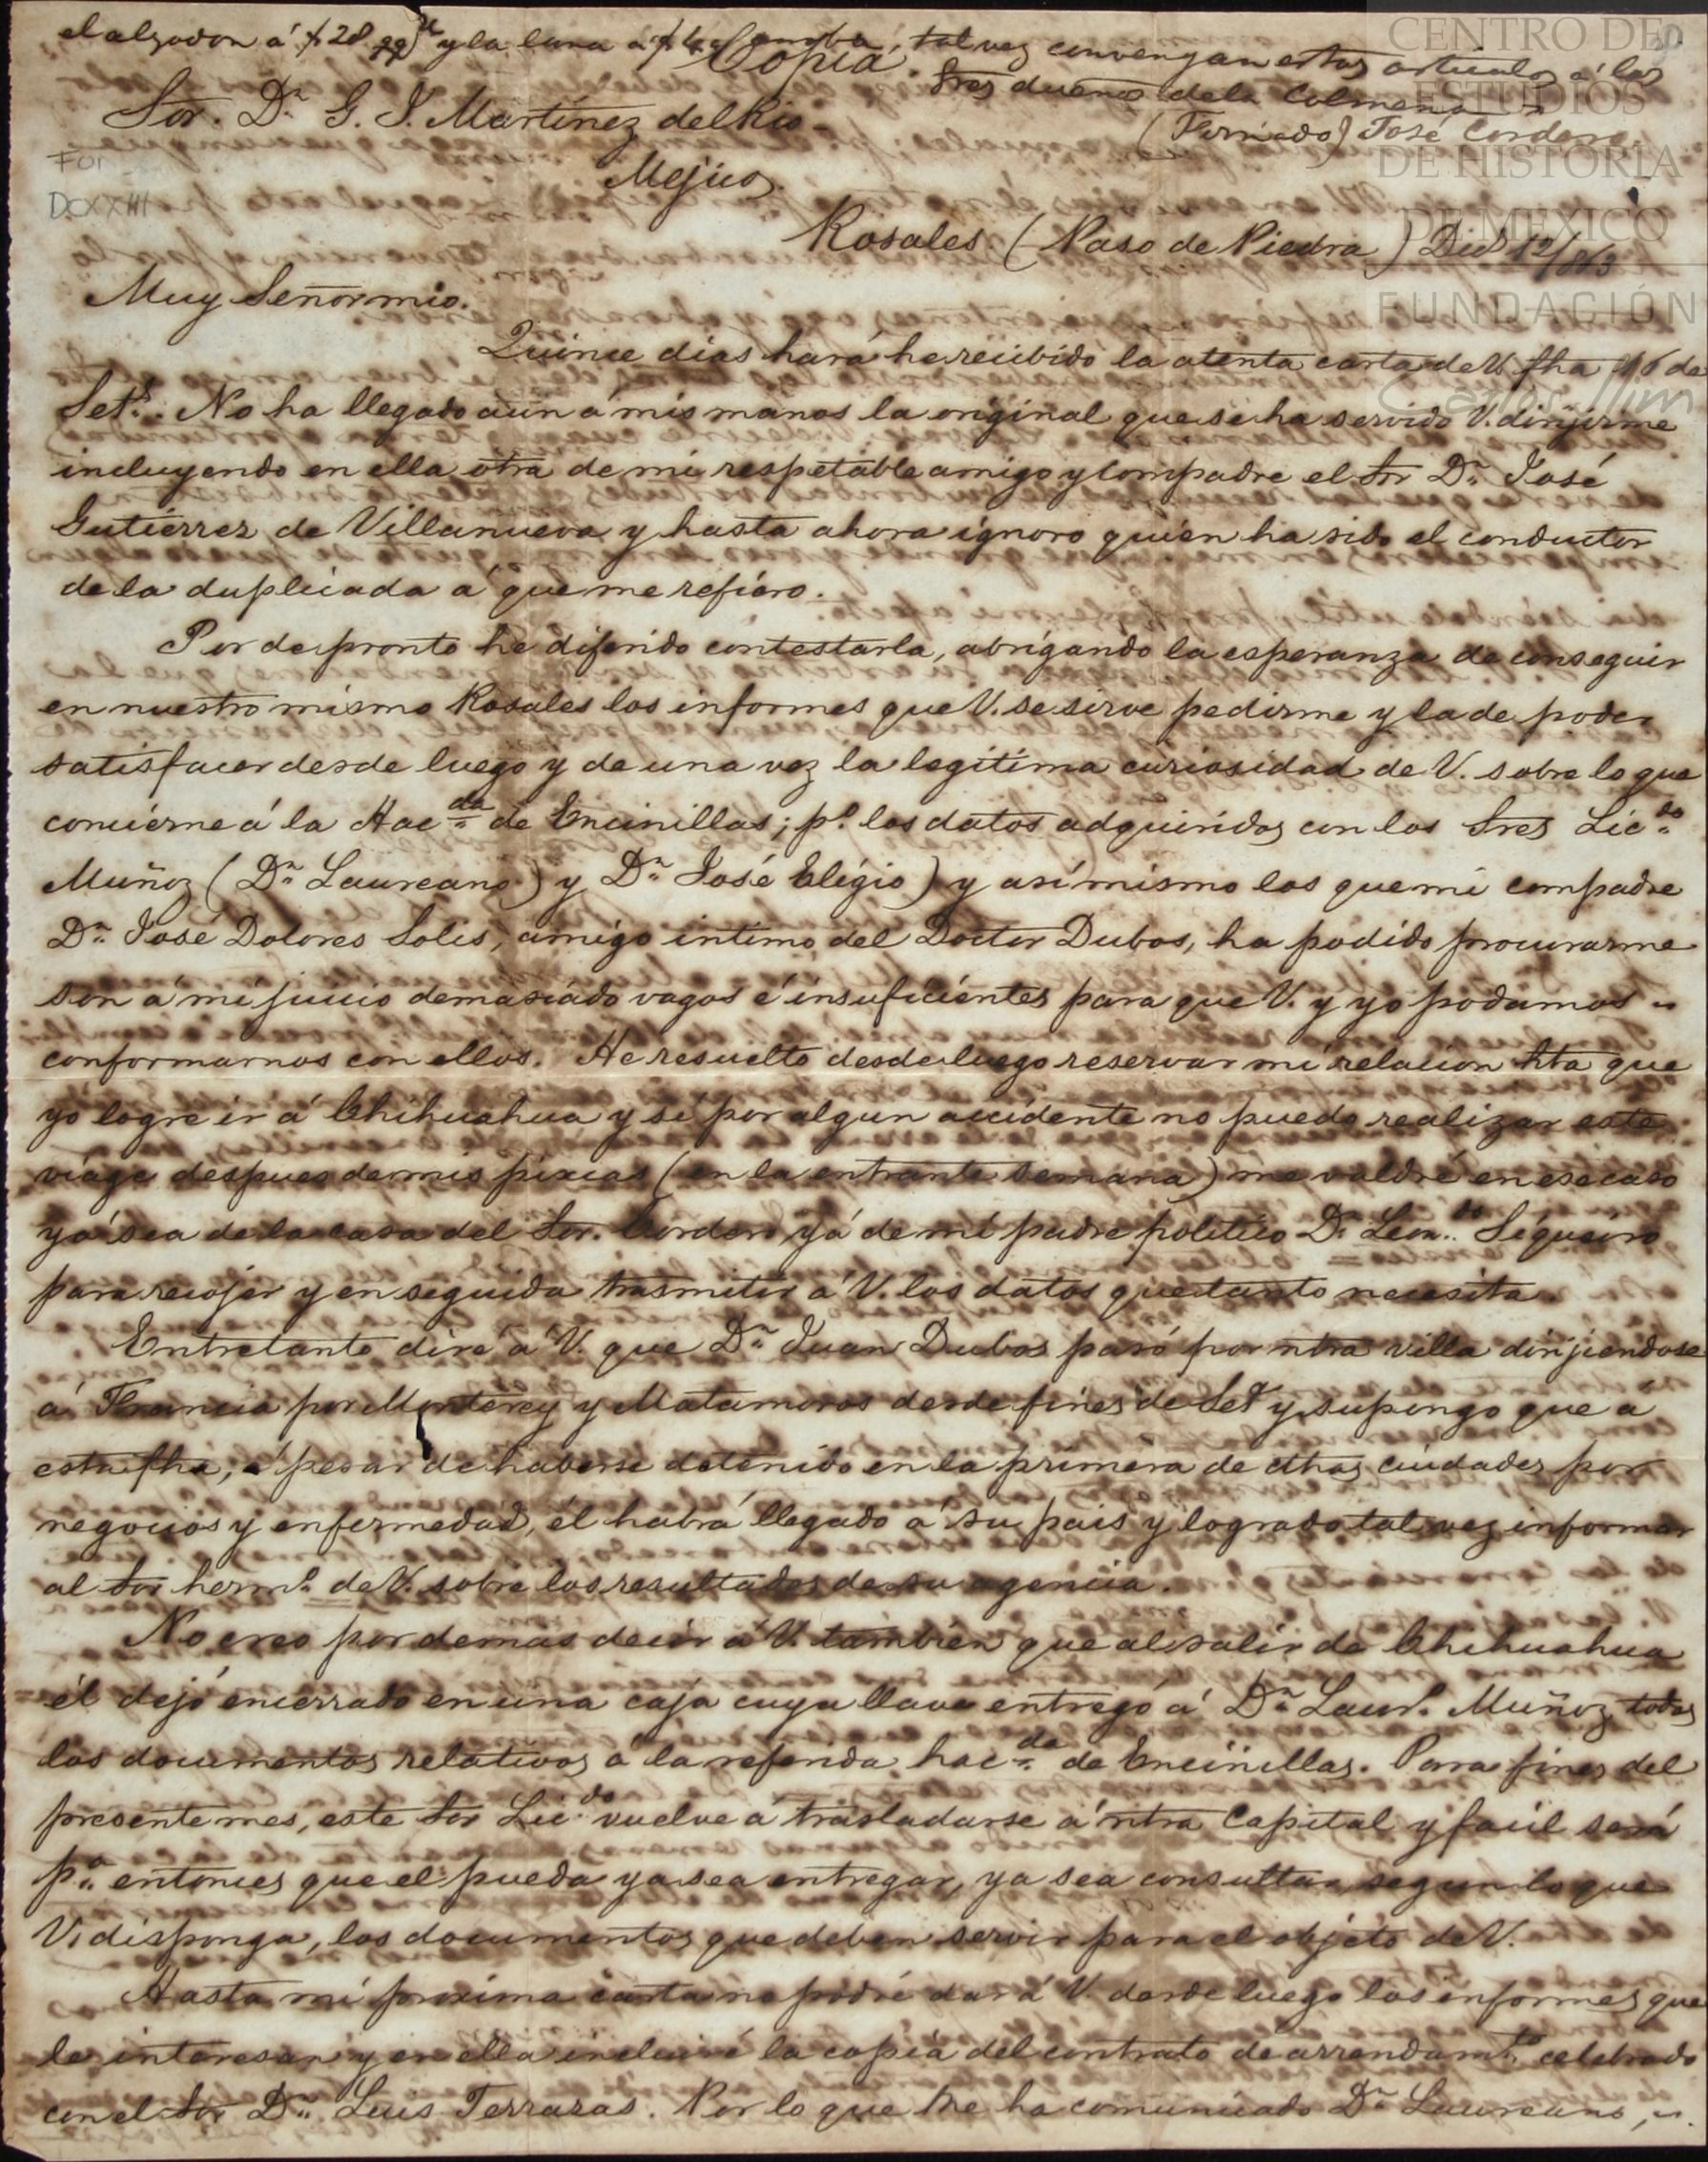 el algodon á $28 qq y la lana á $4 arroba, tal vez convengan estos articulos á los
Sres dueños de la Colmena
(Firmado) José Cordero
Copia
Sor. Dn G. J. Martínez del Rio
Mejico
Rosales (Paso de Piedra) Dic 12/863
Muy Señor mio.
Quince dias hará he recibido la atenta carta de V. fha 16 de
Set.e. No ha llegado aún á mis manos la original que se ha servido V. dirijirme
incluyendo en ella otra de mi respetable amigo y compadre el Sor Dn José
Gutiérrez de Villanueva y hasta ahora ignoro quién ha sido el conductor
de la duplicada á que me refiero.
Por de pronto he diferido contestarla, abrigando la esperanza de conseguir
en nuestro mismo Rosales los informes que V. se sirve pedirme y la de poder
satisfacer desde luego y de una vez la legítima curiosidad de V. sobre lo que
concierne á la Hacda de Encinillas; po los datos adquiridos con los Sres Licdo
Muñoz (Dn Laureano) y Dn José Eligio) y asi mismo los que mi compadre
Dn José Dolores Solis, amigo intimo del Doctor Dubos, ha podido procurarme
son á mi juicio demasiado vagos é insuficientes para que V. y yo podamos
conformarnos con ellos. He resuelto desde luego reservar mi relacion hta que
yo logre ir á Chihuahua y si por algun accidente no puedo realizar este
viage despues de mis pixcas (en la entrante semana) me valdré en ese caso
yá sea de la casa del Sor. Cordero yá de mi padre politico Dn Leon.do Siqueiro
para recojer y en seguida trasmitir á V. los datos que tanto necesita.
Entretanto diré á V. que Dn Juan Dubos pasó por ntra villa dirijiendose
á Francia por Monterey y Matamoros desde fines de Set.e y supongo que á
esta fha, á pesar de haberse detenido en la primera de dhas ciudades por
negocios y enfermedad, él habrá llegado á su pais y logrado tal vez informar
al Sor hermo de V. sobre los resultados de su agencia.
No creo por demas decir á V. tambien que al salir de Chihuahua
él dejó encerrado en una caja cuya llave entregó á Dn Laur.o Muñoz todos
los documentos relativos á la referida hacda de Encinillas. Para fines del
presente mes, este Sor Licdo vuelve á trasladarse á ntra Capital y facil será
pa entonces que el pueda ya sea entregar, ya sea consultar segun lo que
V. disponga, los documentos que deben servir para el objeto de V.
Hasta mi proxima carta no podré dar á V. desde luego los informes que
le interesan y en ella incluiré la copia del contrato de arrendamto celebrado
con el Sor Dn Luis Terrazas. Por lo que me ha comunicado Dn Laureano,
FOI
DCXXIII
CENTRO DE
ESTUDIOS
DE HISTORIA
DE MEXICO
FUNDACIÓN
Carlos Slim